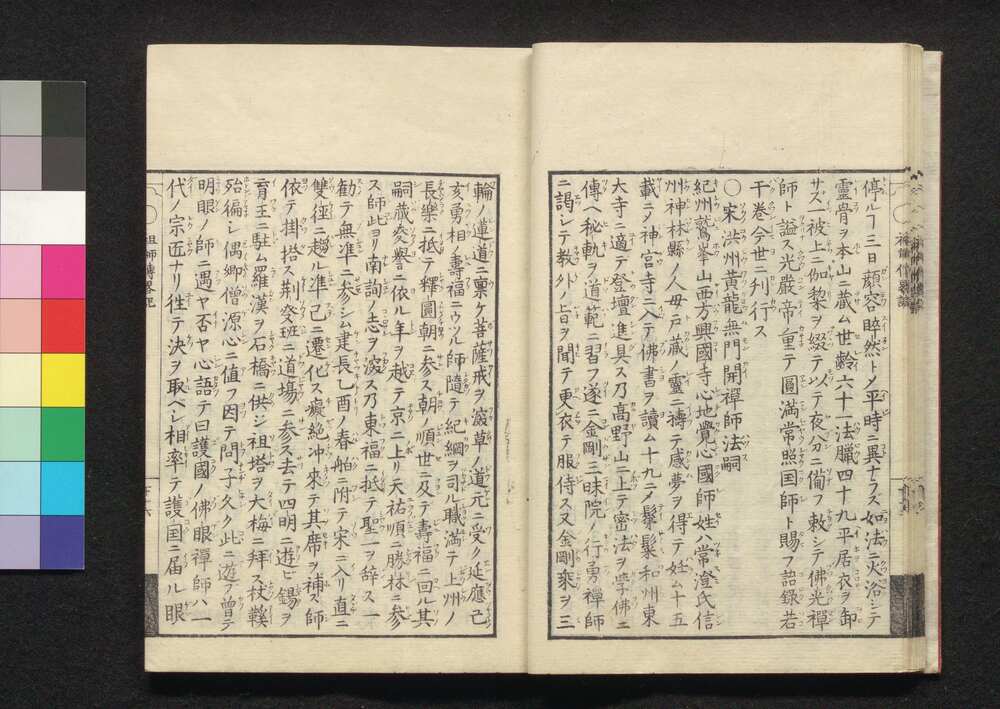 停ルヿ三日顔容睟然トメ平時ニ異ナラズ如法ニ火浴シテ
霊骨ヲ本山ニ蔵ム世齢六十法臘四十九平居衣ヲ卸
サス一被上ニ伽黎ヲ綴テ以テ夜分ニ備フ敕シテ佛光禪
師ト謚ス光嚴帝重テ圓滿常照国師ト賜フ語録若
干巻今世ニ刋行ス
〇宋洪州黄龍無門開禪師法嗣
紀州鷲峯山西方興國寺心地覺心國師姓ハ常澄氏信
州神林縣ノ人母戸蔵ノ靈ニ禱テ感夢ヲ得テ妊ム十五
載ニメ神宮寺ニ入テ佛書ヲ讀ム十九ニメ鬀髪和州東
大寺ニ適テ登壇進具ス乃高野山ニ上テ密法ヲ学佛ニ
傳ヘ秘軌ヲ道範ニ習フ遂ニ金剛三昧院ノ行勇禪師
ニ謁シテ教外ノ旨ヲ聞テ更衣テ服侍ス又金剛乘ヲ三
輪ノ蓮道ニ禀ケ菩薩戒ヲ深草ノ道元ニ受ク延應己
亥勇相ノ壽福ニウツル師隨テ紀綱ヲ司ル職滿テ上州ノ
長樂ニ抵テ釋圓朝ニ参ス朝ノ順世ニ及テ壽福ニ回ル其
嗣藏叟譽ニ依ル年ヲ越テ京ニ上リ天祐順ニ勝林ニ参
ス師此ヨリ南詢ノ志ヲ深ス乃東福ニ抵テ聖一ヲ辞ス一
勧テ無準ニ参シム建長乙酉ノ春舶ニ附テ宋ニ入リ直ニ
雙徑ニ趨ル準已ニ遷化ス癡絶冲來テ其席ヲ補ス師
依テ掛搭ス荆叟珏ニ道塲ニ参ス去テ四明ニ遊ヒ錫ヲ
育王ニ駐ム羅漢ヲ石橋ニ供シ祖塔ヲ大梅ニ拜ス杖鞵
殆徧シ偶郷僧源心ニ値フ因テ問子久ク此ニ遊フ曽テ
明眼ノ師ニ遇ヤ否ヤ心語テ曰護國ノ佛眼禪師ハ一
代ノ宗匠ナリ往テ決ヲ取ベシ相率テ護国ニ届ル眼